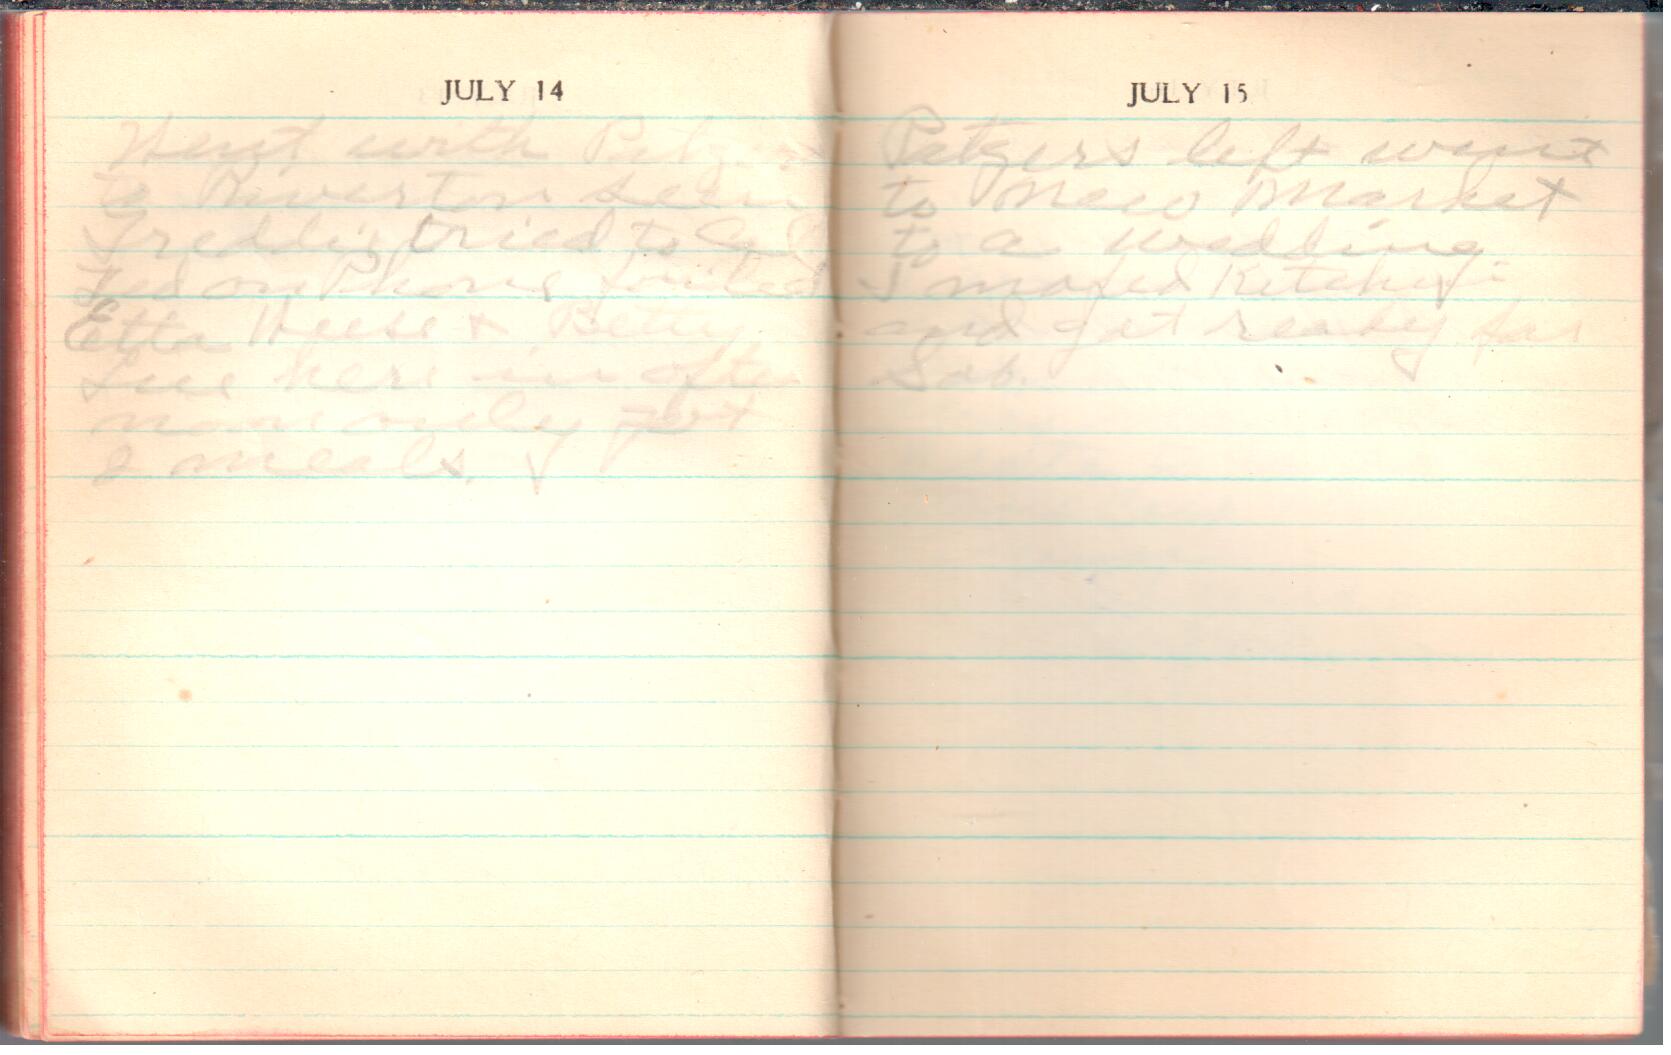 JULY 14
Went with Patzers
to Riverton seen
Freddie, tried to
Ted on Phone failed
Etta Heese & Betty
Lue here in after
noon only got
2 meals.
JULY 15
Patzers left went
to New Market
to a Wedding
I moped Kitchen
and got ready for
Sab.